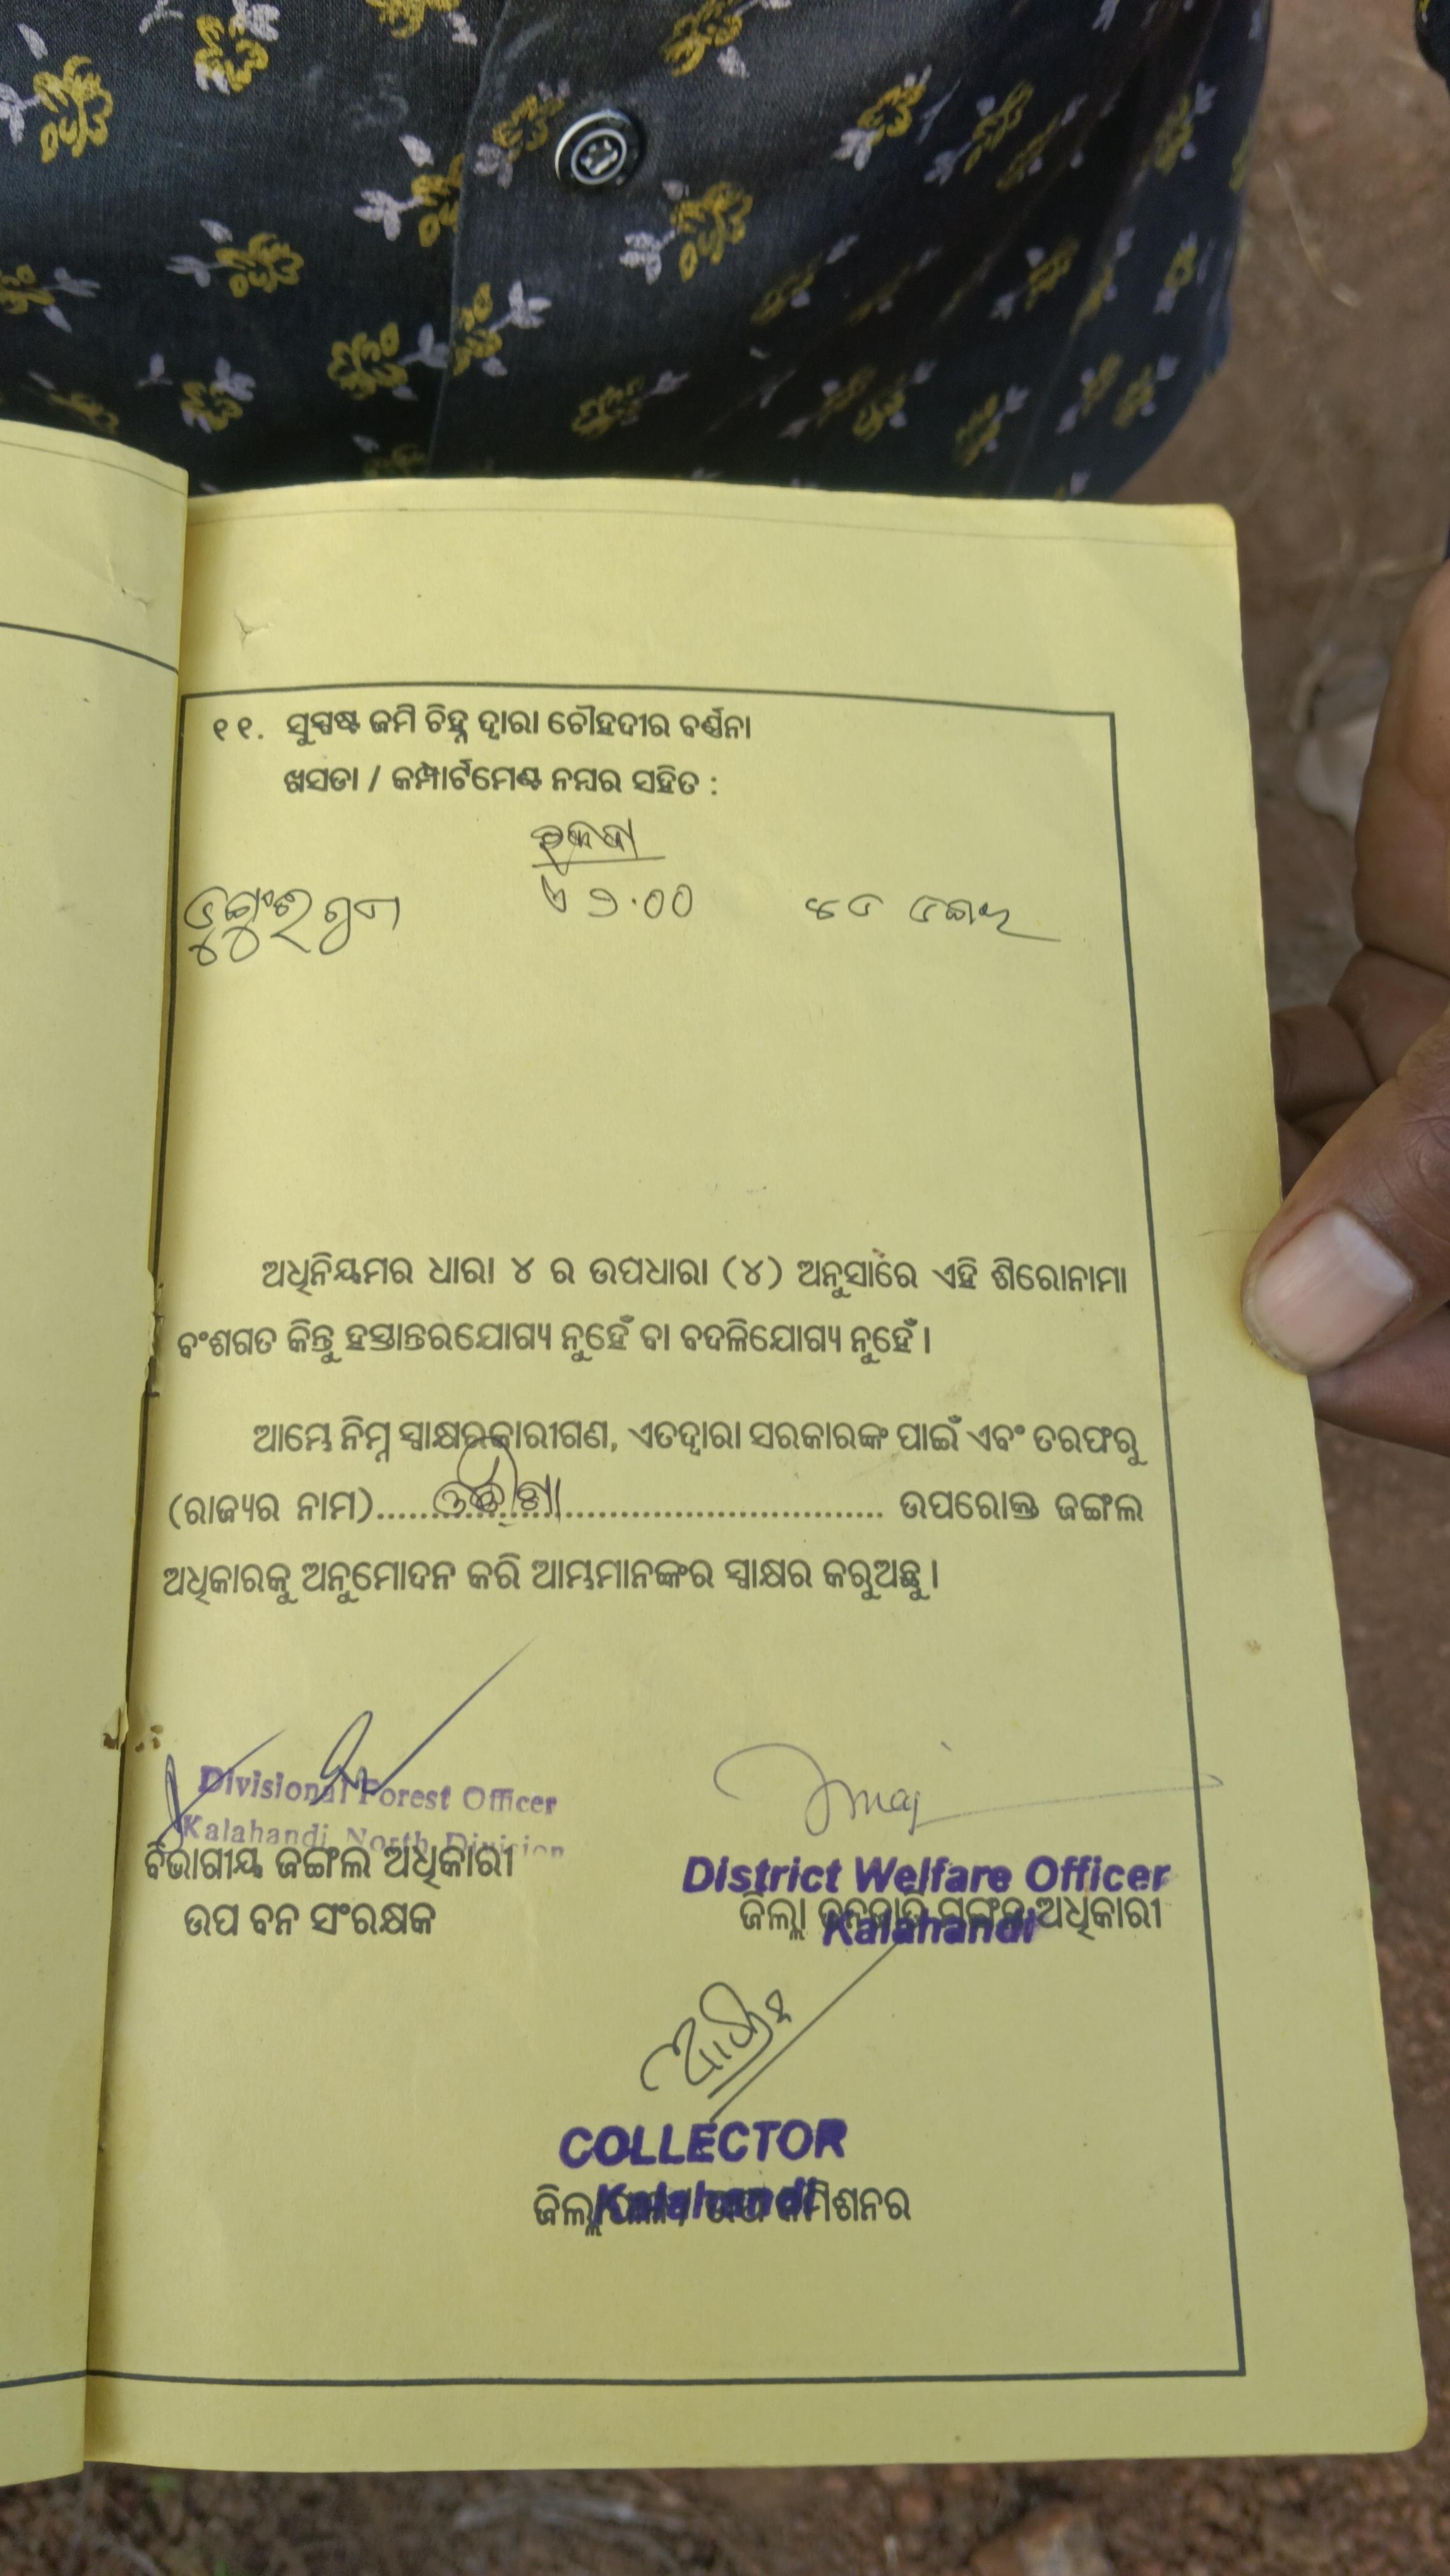 ୧୧. ସୁସ୍ପଷ୍ଟ ଜମି ଚିହ୍ନ ଦ୍ୱାରା ଚୌହଦୀର ବର୍ଣ୍ଣନା
ଖସଡା / କମ୍ପାର୍ଟମେଣ୍ଟ ନମ୍ବର ସହିତ :
ରକବା
୨.୦୦
ଅଧିନିୟମର ଧାରା ୪ ର ଉପଧାରା (୪) ଅନୁସାରେ ଏହି ଶିରୋନାମା
ବଂଶଗତ କିନ୍ତୁ ହସ୍ତାନ୍ତରଯୋଗ୍ୟ ନୁହେଁ ବା ବଦଳିଯୋଗ୍ୟ ନୁହେଁ ।
ଆମ୍ଭେ ନିମ୍ନ ସ୍ୱାକ୍ଷରକାରୀଗଣ, ଏତଦ୍ୱାରା ସରକାରଙ୍କ ପାଇଁ ଏବଂ ତରଫରୁ
(ରାଜ୍ୟର ନାମ).....ଓଡ଼ିଶା..... ଉପରୋକ୍ତ ଜଙ୍ଗଲ
ଅଧିକାରକୁ ଅନୁମୋଦନ କରି ଆମ୍ଭମାନଙ୍କର ସ୍ୱାକ୍ଷର କରୁଅଛୁ ।
Divisional Forest Officer
Kalahandi North Division
ବିଭାଗୀୟ ଜଙ୍ଗଲ ଅଧିକାରୀ
ଉପ ବନ ସଂରକ୍ଷକ
District Welfare Officer
Kalahandi
ଜିଲ୍ଲା ଜନଜାତି ମଙ୍ଗଳ ଅଧିକାରୀ
COLLECTOR
Kalahandi